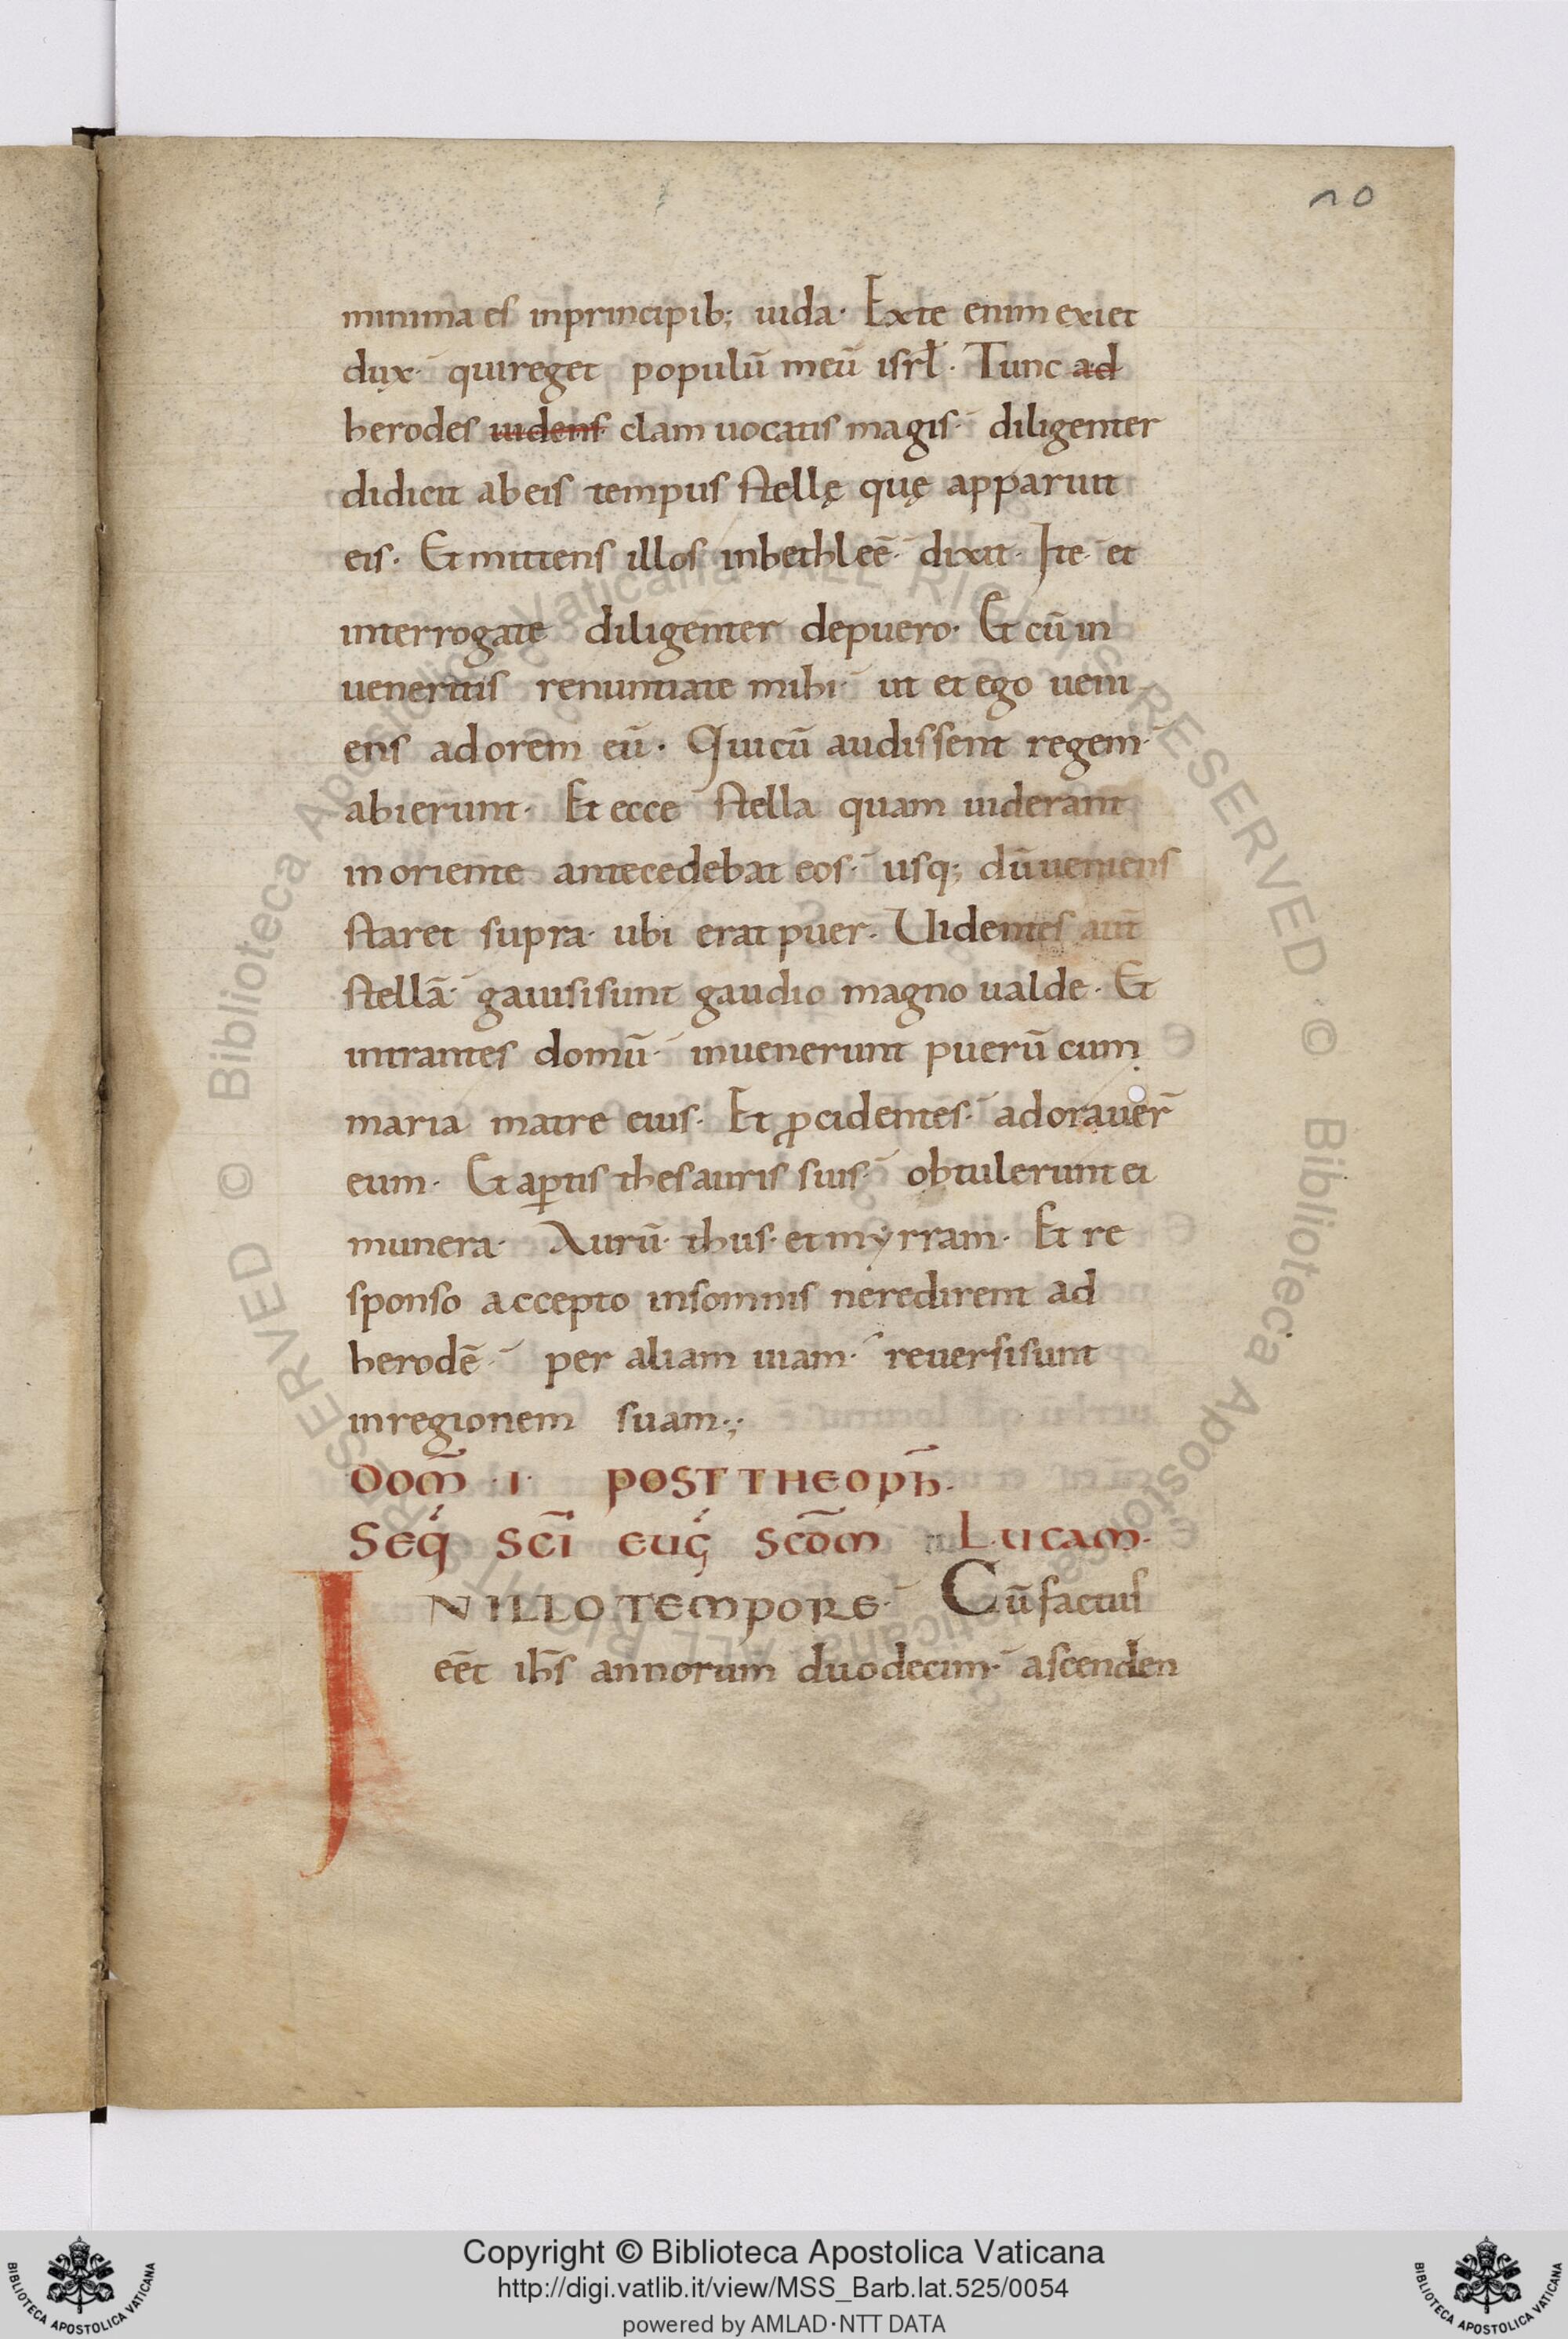 20
minima es inprincipib; iuda· Exte enim exiet
dux· quireget populū meū isrł· Tunc ad
herodes uidens clam uocatis magis· diligenter
didicit abeis tempus stellę quę apparuit
eis· Et mittens illos inbethleē· dixit· Ite· et
interrogate diligenter depuero· Et cū in
ueneritis renuntiate mihi· ut et ego ueni
ens adorem eū· Qui cū audissent regem·
abierunt· Et ecce stella quam uiderant
inoriente antecedebat eos· usq; dū ueniens
staret supra· ubi erat puer· Uidentes aut̄
stellā· gauisi sunt gaudio magno ualde· Et
intrantes domū· inuenerunt puerū cum
maria matre eius· Et ꝓcidentes· adorauer̄
eum· Et aꝑtis thesauris suis· obtulerunt ei
munera· Aurū· thus· et myrram· Et re
sponso accepto insomnis neredirent ad
herodē· per aliam uiam· reuersisunt
inregionem suam·;
DOM̄ ·I· POST THEOPH̄·
SEQ̄ SC̄I EUḠ SCDM̄ LUCAM·
IN ILLO TEMPORE· Cū factus
eēt ih̄s annorum duodecim· ascenden
Copyright © Biblioteca Apostolica Vaticana
http://digi.vatlib.it/view/MSS_Barb.lat.525/0054
powered by AMLAD·NTT DATA
BIBLIOTECA APOSTOLICA VATICANA
BIBLIOTECA APOSTOLICA VATICANA